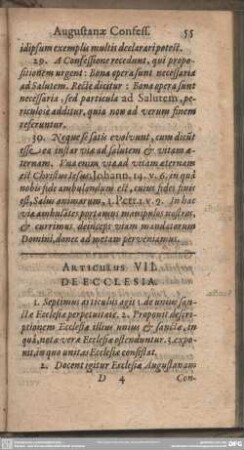 Augustanæ Confess. 55
idipsum exemplis multis declarari potest.
29. A Confessione recedunt, qui propo-
sitionem urgent: Bona opera sunt necessaria
ad Salutem. Recte dicitur: Bona opera sunt
necessaria, sed particula ad Salutem, pe-
riculose additur, quia non ad verum finem
referuntur.
30. Neque se satis evolvunt, cum dicũt
esse ea instar viæ ad salutem & vitam æ-
ternam. Una enim via ad vitam æternam
est Christus Iesus, Johann. 14. v. 6. in qua
nobis fide ambulandum est, cuius fidei finis
est, Salus animarum, 1. Petr. 1. v. 9. In hac
via ambulãtes portamus manipulos nostros,
& currimus deinceps viam mandatorum
Domini, donec ad metam perveniamus.
ARTICULUS VII.
DE ECCLESIA.
1. Septimus articulus agit: de unius san-
ctæ Ecclesiæ perpetuitate. 2. Proponit descri-
ptionem Ecclesiæ illius unius & sanctæ, in
qua, nota veræ Ecclesiæ ostenduntur. 3. expo-
nit, in quo unitas Ecclesiæ consistat.
2. Docent igitur Ecclesiæ Augustanam
D 4 Con-